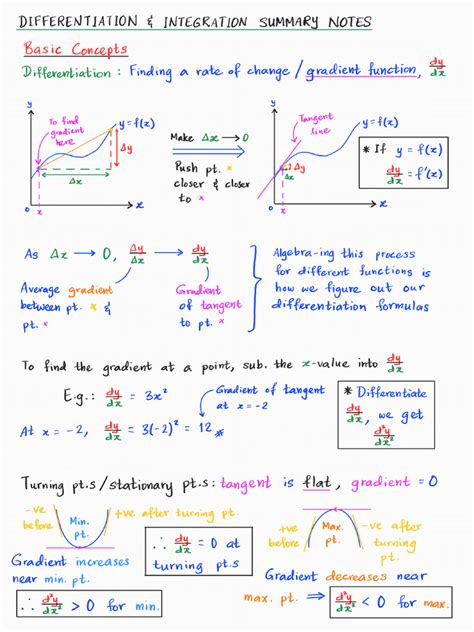 DIFFERENTIATION & INTEGRATION SUMMARY NOTES
Basic Concepts
Differentiation : Finding a rate of change / gradient function, dy/dx
y
To find
gradient
here
y = f(x)
Δy
Δx
0
x
x
Make Δx → 0
Push pt. ×
closer & closer
to ×
y
Tangent
line
y = f(x)
Δy
Δx
0
x
x
* If y = f(x)
dy/dx = f'(x)
As Δx → 0, Δy/Δx → dy/dx
Average gradient
between pt. × &
pt. ×
Gradient
of tangent
to pt. ×
Algebra-ing this process
for different functions is
how we figure out our
differentiation formulas
To find the gradient at a point, sub. the x-value into dy/dx
E.g.: dy/dx = 3x²
At x = -2, dy/dx = 3(-2)² = 12 *
Gradient of tangent
at x = -2
* Differentiate
dy/dx, we get
d²y/dx²
Turning pt.s / stationary pt.s : tangent is flat, gradient = 0
-ve
before
Min.
pt.
+ve after turning pt.
∴ dy/dx = 0 at
turning pt.s
+ve
before
Max.
pt.
-ve after
turning pt.
Gradient increases
near min. pt.
∴ d²y/dx² > 0 for min.
Gradient decreases near
max. pt. → ∴ d²y/dx² < 0 for max.